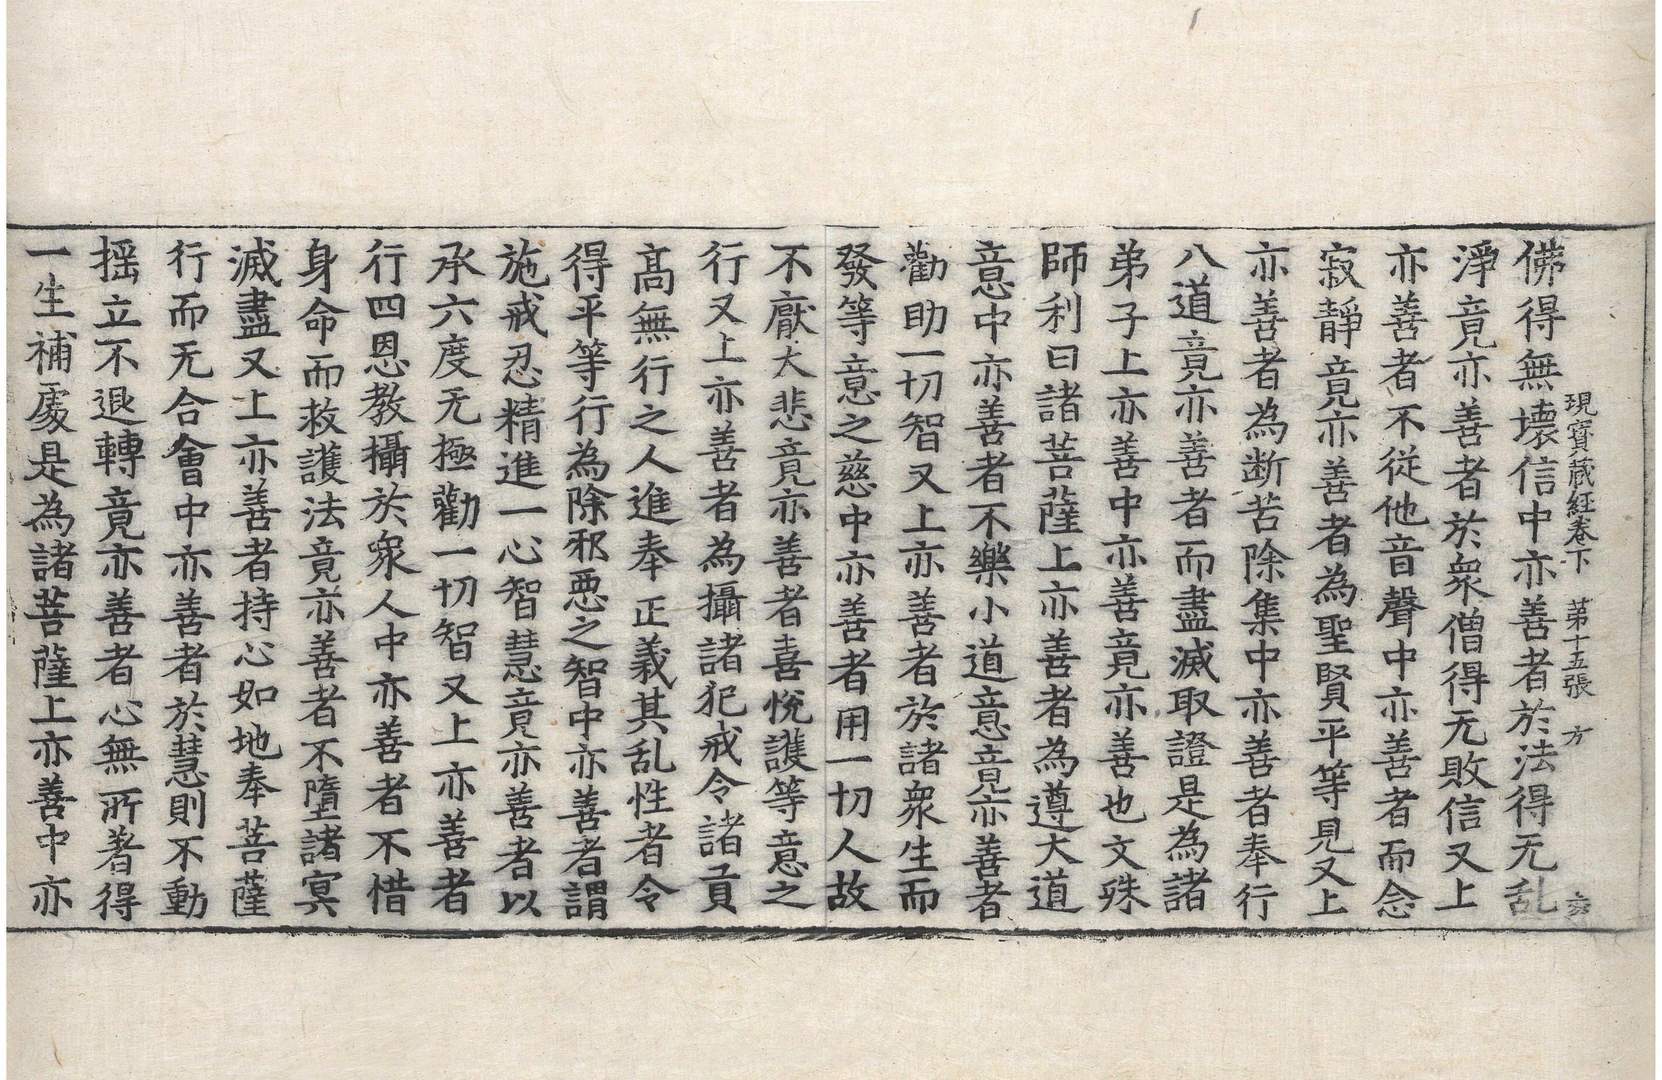 現寶藏經卷下　第十五張　方
佛得無壞信中亦善者於法得无乱
淨竟亦善者於衆僧得无敗信又上
亦善者不從他音聲中亦善者而念
寂靜竟亦善者為聖賢平等見又上
亦善者為断苦除集中亦善者奉行
八道竟亦善者而盡滅取證是為諸
弟子上亦善中亦善竟亦善也文殊
師利曰諸菩薩上亦善者為遵大道
意中亦善者不樂小道意竟亦善者
勸助一切智又上亦善者於諸衆生而
發等意之慈中亦善者用一切人故
不厭大悲竟亦善者喜悅護等意之
行又上亦善者為攝諸犯戒令諸貢
髙無行之人進奉正義其乱性者令
得平等行為除邪惡之智中亦善者謂
施戒忍精進一心智慧竟亦善者以
承六度无極勸一切智又上亦善者
行四恩教攝於衆人中亦善者不惜
身命而救護法竟亦善者不墮諸冥
滅盡又上亦善者持心如地奉菩薩
行而无合會中亦善者於慧則不動
摇立不退轉竟亦善者心無所著得
一生補處是為諸菩薩上亦善中亦